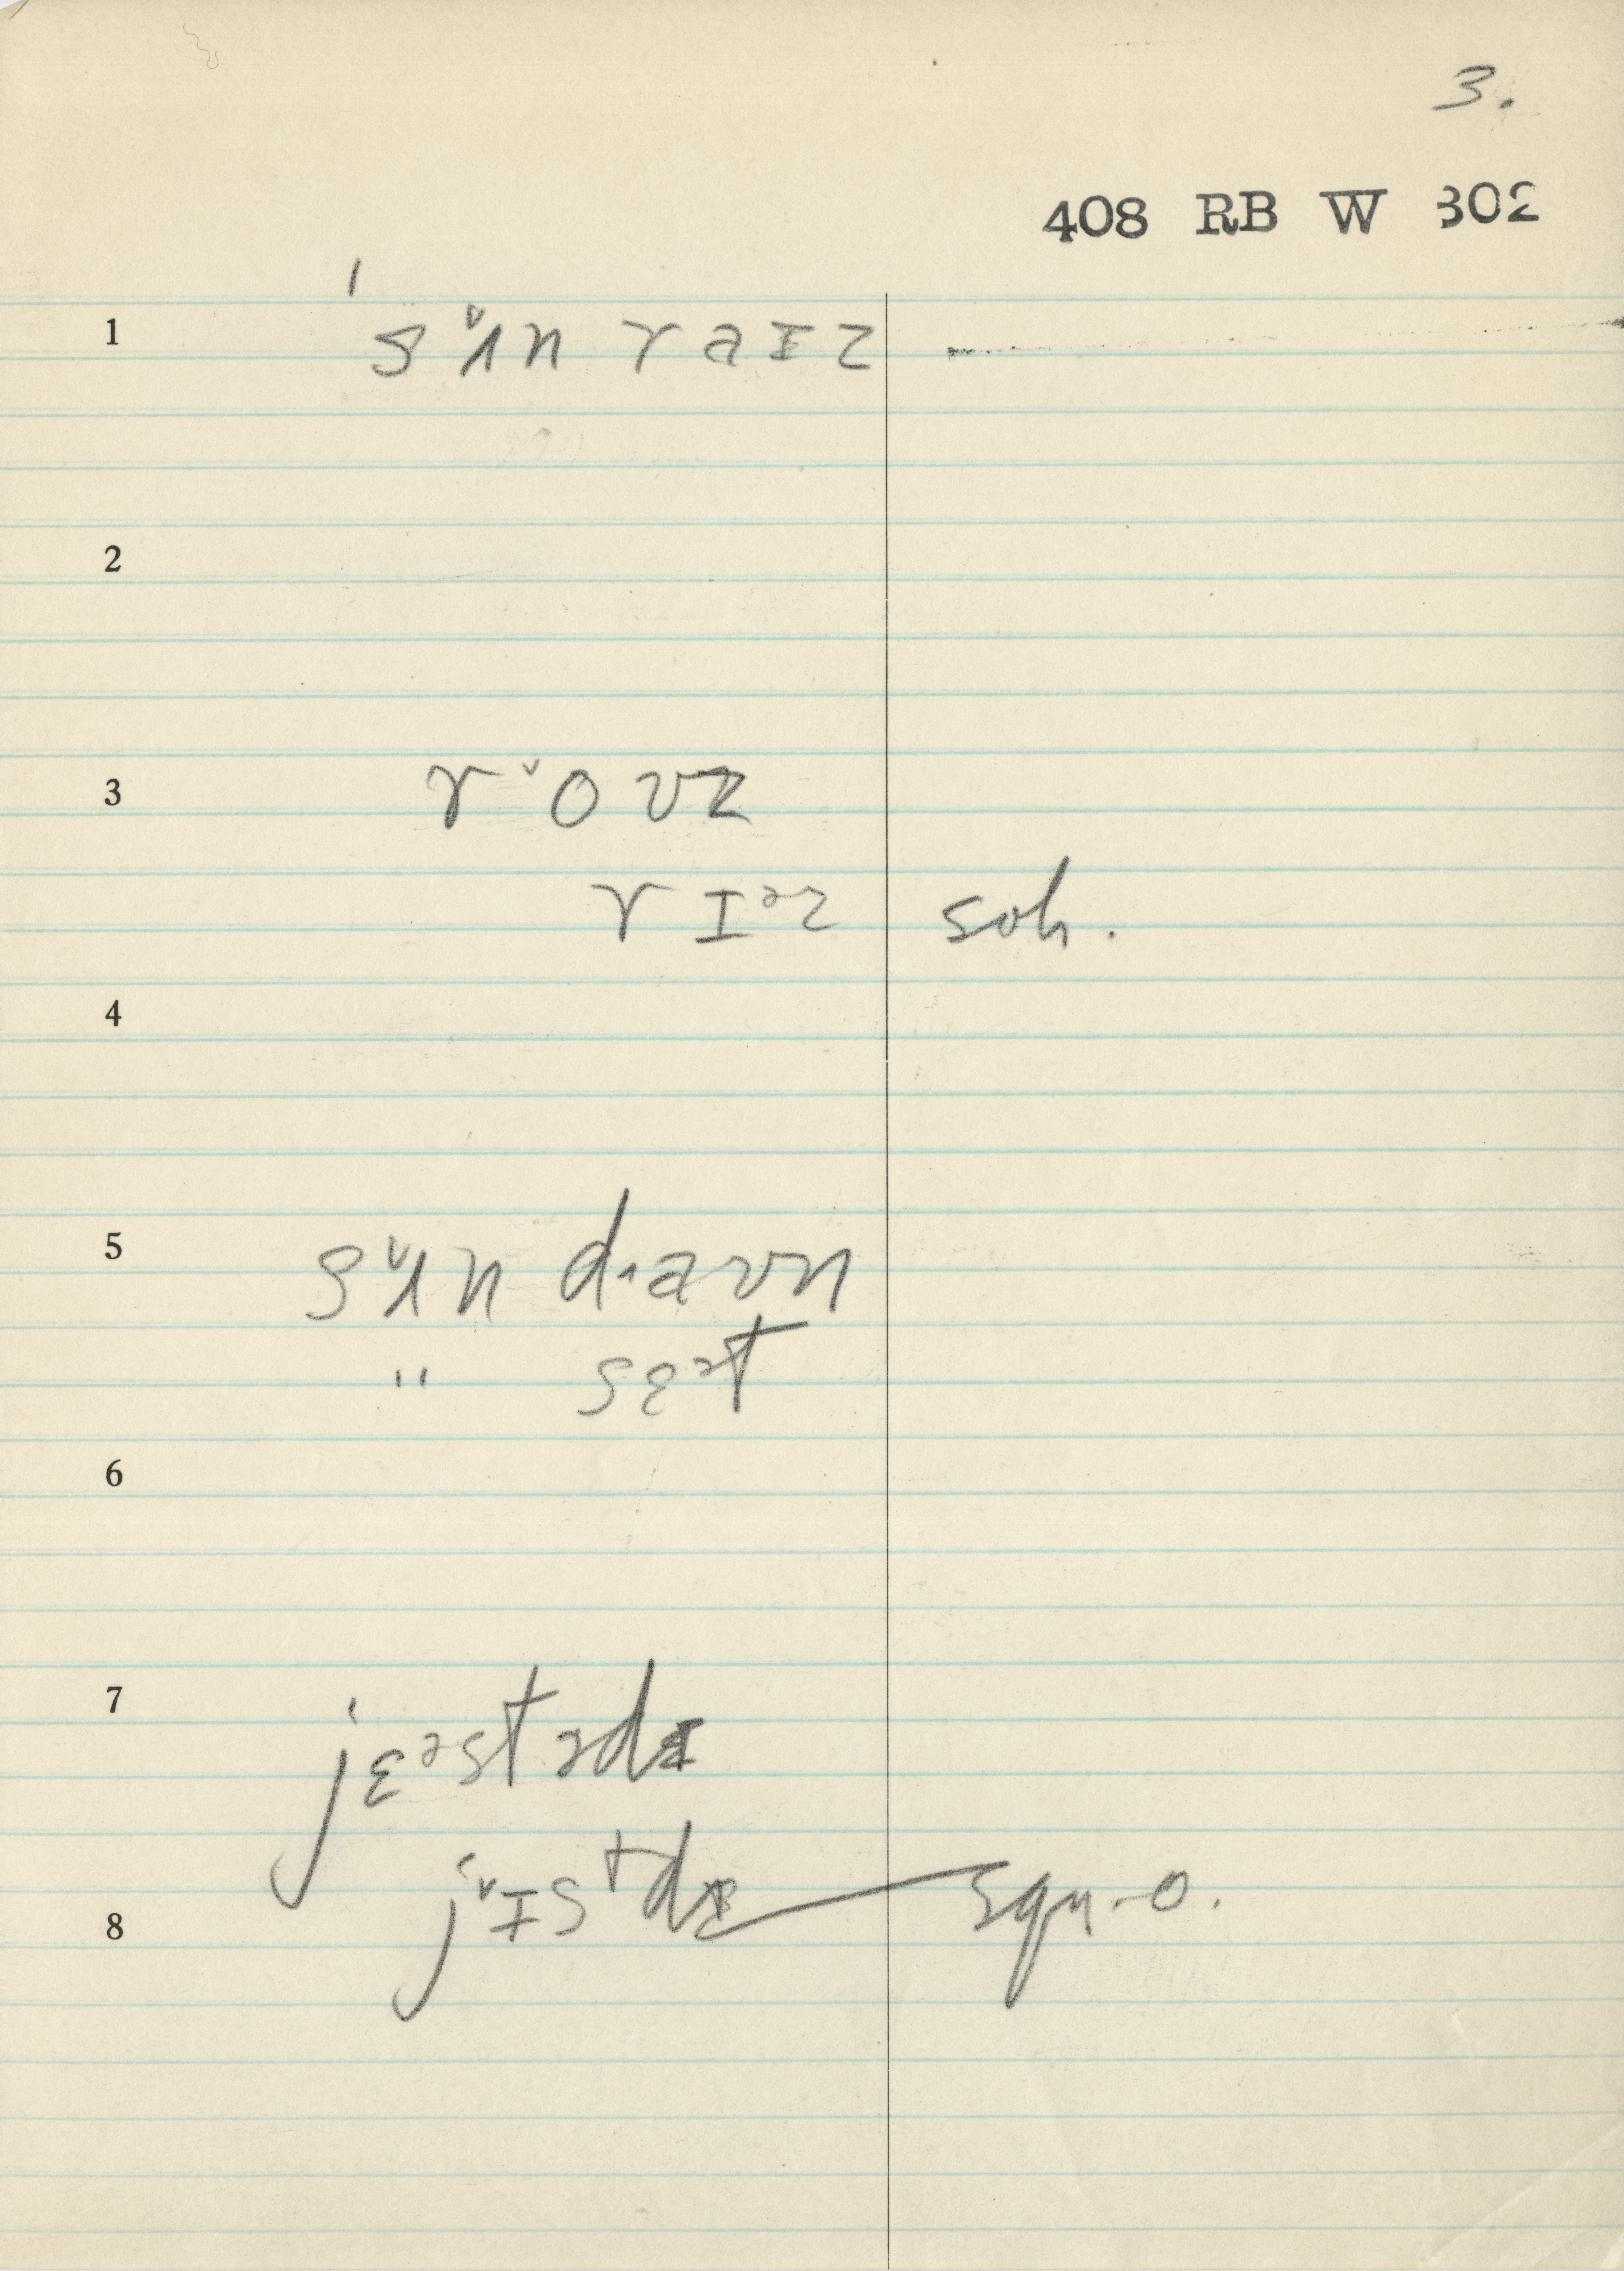 3.
408 RB W 302
1 ˈsᵛʌn raɪz —
2
3 rᵛoʊz
rɪᵊz soh.
4
5 sᵛʌn daʊn
" sɛᵊt
6
7 jɛᵊstədɪ
jᵛɪstdɪ
8 squ.-o.